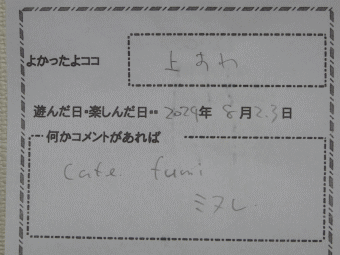 よかったよココ 上おわ
遊んだ日・楽しんだ日・・2029年 8月2.3日
何かコメントがあれば
cafe fumi
ミヌレ